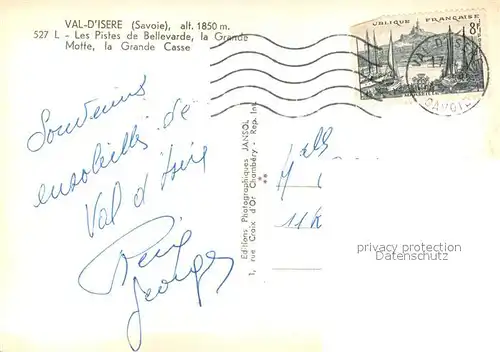 VAL-D'ISERE (Savoie), alt. 1850 m.
527 L - Les Pistes de Bellevarde, la Grande
Motte, la Grande Casse
UBLIQUE FRANÇAISE
8F
VAL D'ISERE
SAVOIE
Souvenirs
ensoleillés de
Val d'Isère
Georges
Editions Photographiques JANSOL
1, rue Croix d'Or Chambéry - Rep. Int.
privacy protection
Datenschutz